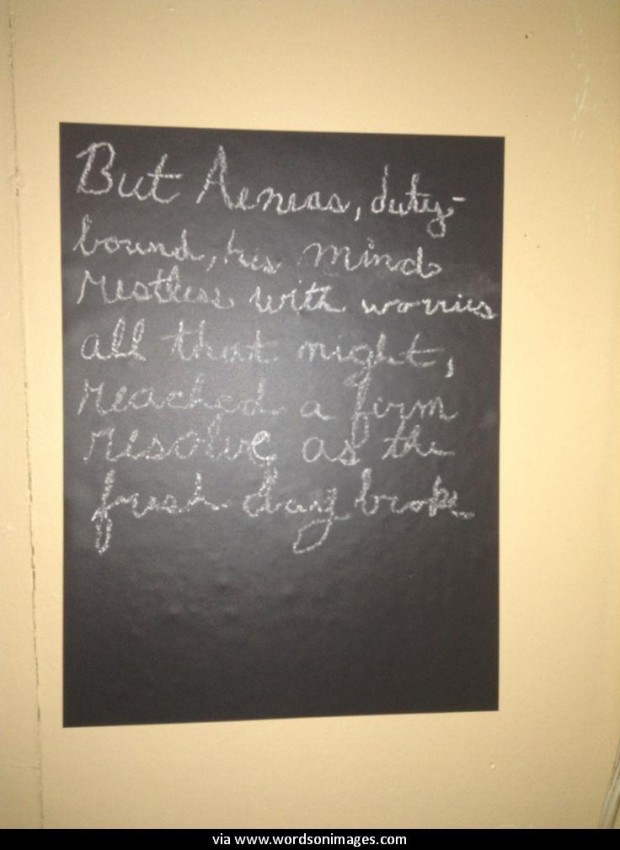 But Aeneas, duty-
bound, his mind
restless with worries
all that night,
reached a firm
resolve as the
fresh day broke
via www.wordsonimages.com